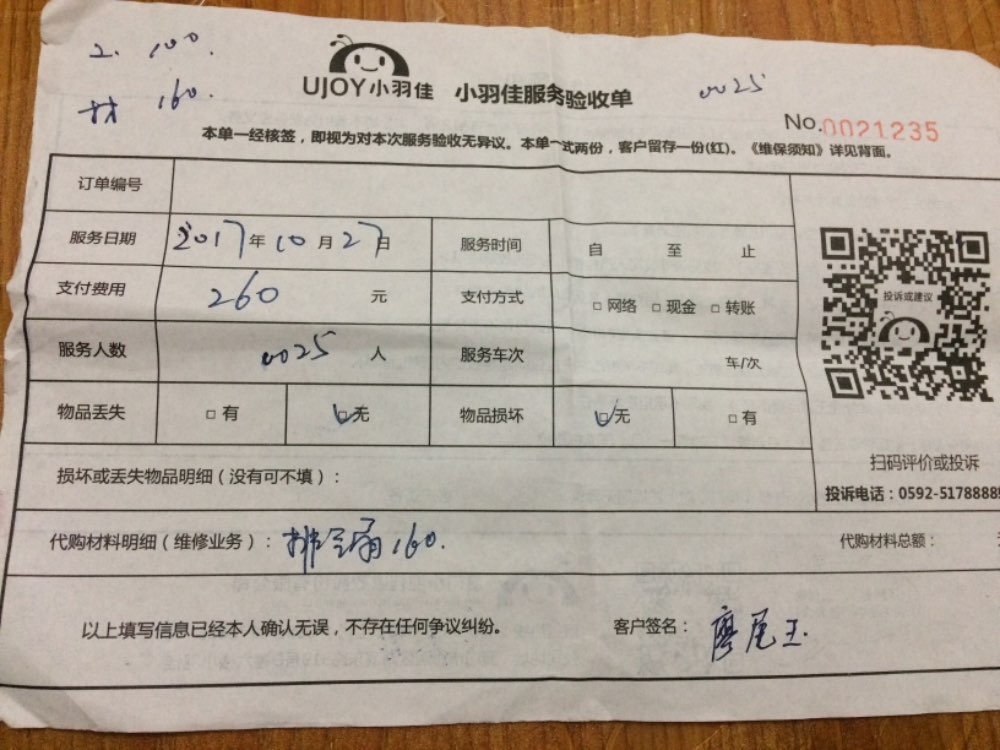 工. 100.
材 160.
UJOY小羽佳 小羽佳服务验收单
0025
No.0021235
本单一经核签，即视为对本次服务验收无异议。本单一式两份，客户留存一份(红)。《维保须知》详见背面。
订单编号
服务日期 2017年10月27日 服务时间 自 至 止
支付费用 260 元 支付方式 □网络 □现金 □转账
投诉或建议
服务人数 0025 人 服务车次 车/次
物品丢失 □有 ☑无 物品损坏 ☑无 □有
扫码评价或投诉
损坏或丢失物品明细（没有可不填）：
投诉电话：0592-5178888
代购材料明细（维修业务）：排气扇160. 代购材料总额：
以上填写信息已经本人确认无误，不存在任何争议纠纷。 客户签名：廖尾玉